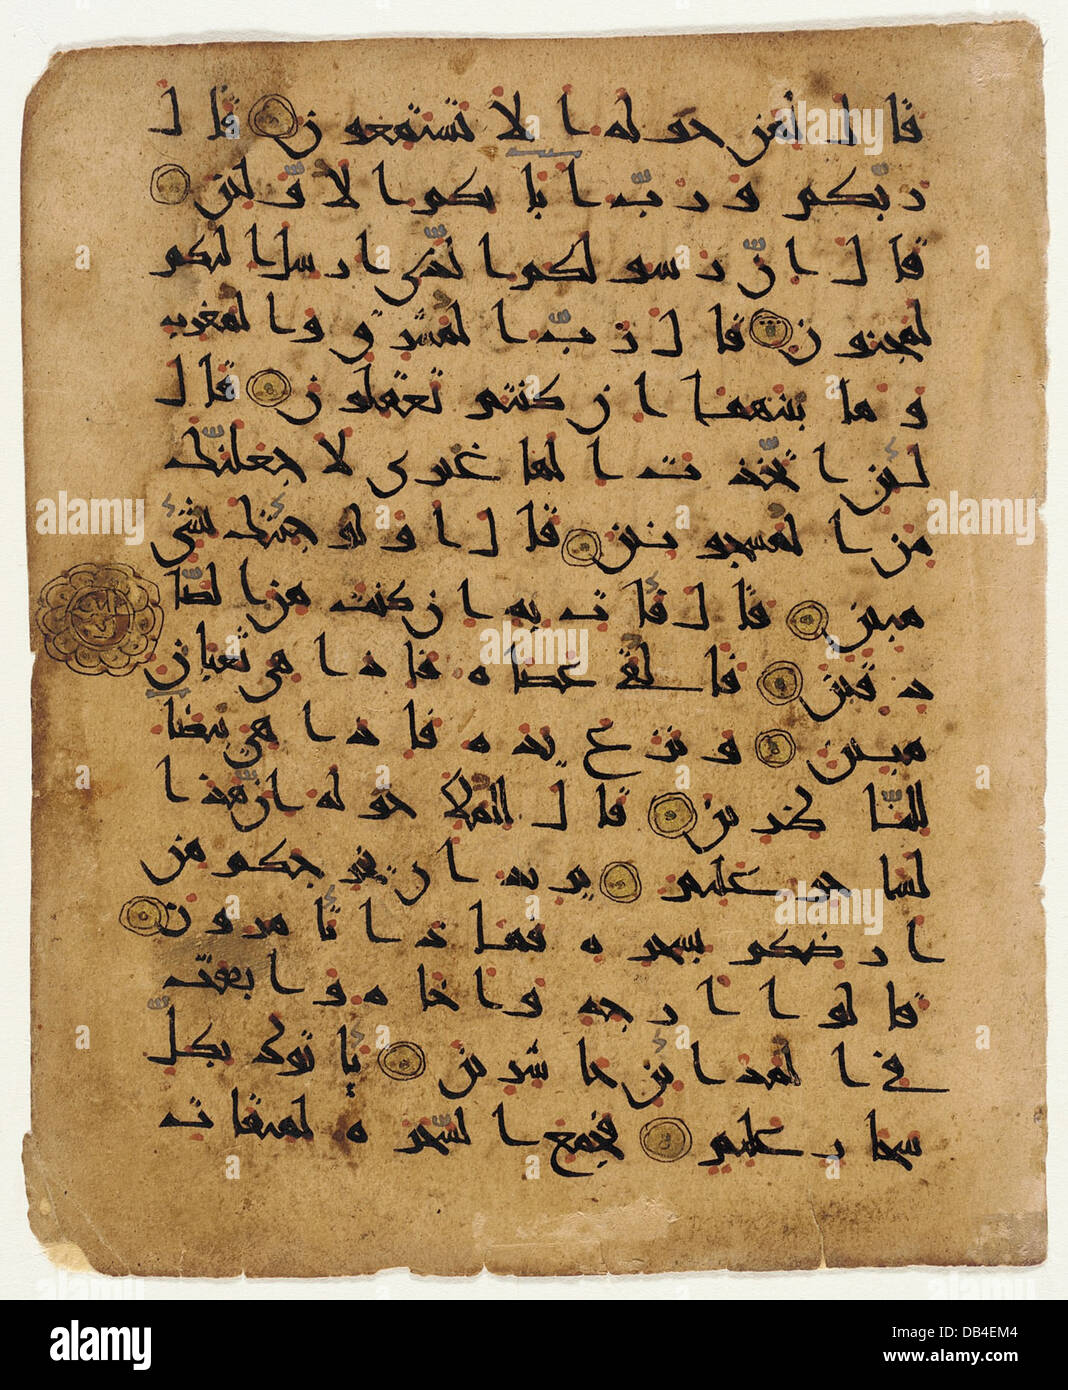 قال لمن حوله الا تستمعون قال
ربكم ورب ابايكم الاولين
قال ان رسولكم الذى ارسل اليكم
لمجنون قال رب المشرق والمغرب
وما بينهما ان كنتم تعقلون قال
لئن اتخذت الها غيرى لاجعلنك
من المسجونين قال اولو جئتك بشىء
مبين قال فأت به ان كنت من الصا
دقين فالقى عصاه فاذا هى ثعبان
مبين ونزع يده فاذا هى بيضا
للناظرين قال للملا حوله ان هذا
لساحر عليم يريد ان يخرجكم من
ارضكم بسحره فماذا تأمرون
قالوا ارجه واخاه وابعث
فى المدائن حاشرين يأتوك بكل
سحار عليم فجمع السحرة لميقات
alamy
Image ID: DB4EM4
www.alamy.com